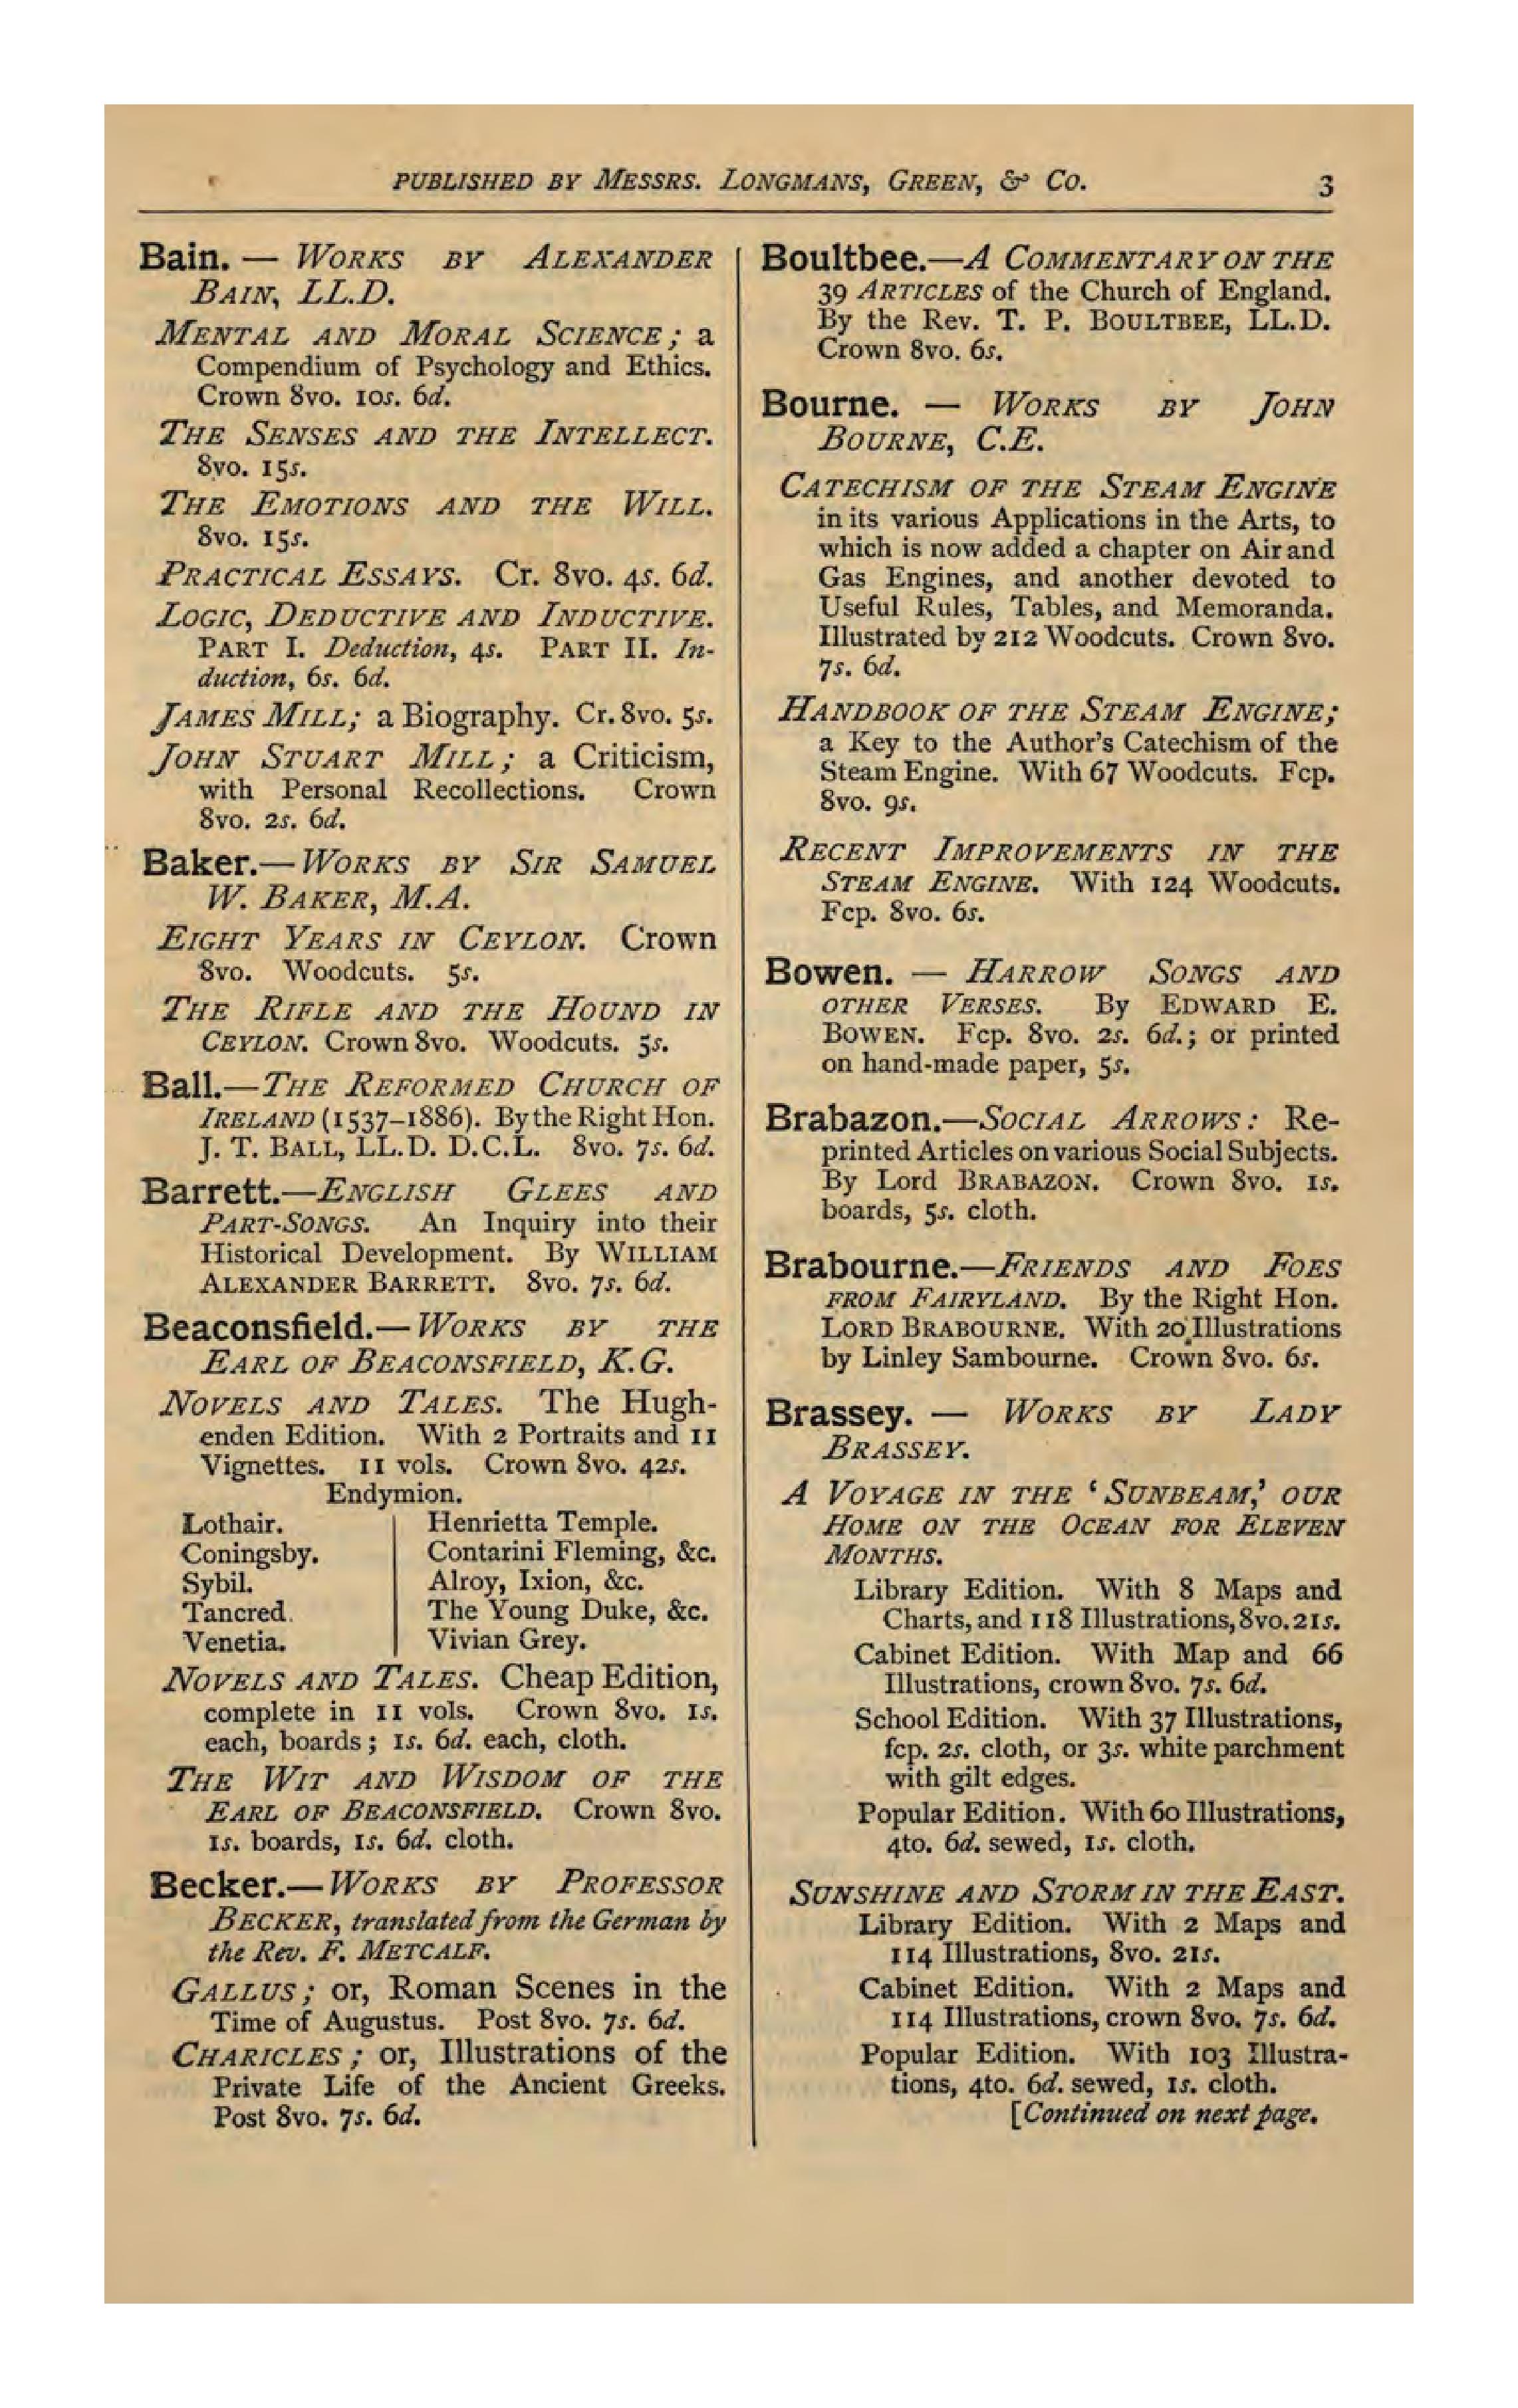 PUBLISHED BY MESSRS. LONGMANS, GREEN, & CO. 3
Bain. — WORKS BY ALEXANDER
BAIN, LL.D.
MENTAL AND MORAL SCIENCE; a
Compendium of Psychology and Ethics.
Crown 8vo. 10s. 6d.
THE SENSES AND THE INTELLECT.
8vo. 15s.
THE EMOTIONS AND THE WILL.
8vo. 15s.
PRACTICAL ESSAYS. Cr. 8vo. 4s. 6d.
LOGIC, DEDUCTIVE AND INDUCTIVE.
PART I. Deduction, 4s. PART II. In-
duction, 6s. 6d.
JAMES MILL; a Biography. Cr. 8vo. 5s.
JOHN STUART MILL; a Criticism,
with Personal Recollections. Crown
8vo. 2s. 6d.
Baker.—WORKS BY SIR SAMUEL
W. BAKER, M.A.
EIGHT YEARS IN CEYLON. Crown
8vo. Woodcuts. 5s.
THE RIFLE AND THE HOUND IN
CEYLON. Crown 8vo. Woodcuts. 5s.
Ball.—THE REFORMED CHURCH OF
IRELAND (1537–1886). By the Right Hon.
J. T. BALL, LL.D. D.C.L. 8vo. 7s. 6d.
Barrett.—ENGLISH GLEES AND
PART-SONGS. An Inquiry into their
Historical Development. By WILLIAM
ALEXANDER BARRETT. 8vo. 7s. 6d.
Beaconsfield.—WORKS BY THE
EARL OF BEACONSFIELD, K.G.
NOVELS AND TALES. The Hugh-
enden Edition. With 2 Portraits and 11
Vignettes. 11 vols. Crown 8vo. 42s.
Endymion.
Lothair. Henrietta Temple.
Coningsby. Contarini Fleming, &c.
Sybil. Alroy, Ixion, &c.
Tancred. The Young Duke, &c.
Venetia. Vivian Grey.
NOVELS AND TALES. Cheap Edition,
complete in 11 vols. Crown 8vo. 1s.
each, boards; 1s. 6d. each, cloth.
THE WIT AND WISDOM OF THE
EARL OF BEACONSFIELD. Crown 8vo.
1s. boards, 1s. 6d. cloth.
Becker.—WORKS BY PROFESSOR
BECKER, translated from the German by
the Rev. F. METCALF.
GALLUS; or, Roman Scenes in the
Time of Augustus. Post 8vo. 7s. 6d.
CHARICLES; or, Illustrations of the
Private Life of the Ancient Greeks.
Post 8vo. 7s. 6d.
Boultbee.—A COMMENTARY ON THE
39 ARTICLES of the Church of England.
By the Rev. T. P. BOULTBEE, LL.D.
Crown 8vo. 6s.
Bourne. — WORKS BY JOHN
BOURNE, C.E.
CATECHISM OF THE STEAM ENGINE
in its various Applications in the Arts, to
which is now added a chapter on Air and
Gas Engines, and another devoted to
Useful Rules, Tables, and Memoranda.
Illustrated by 212 Woodcuts. Crown 8vo.
7s. 6d.
HANDBOOK OF THE STEAM ENGINE;
a Key to the Author's Catechism of the
Steam Engine. With 67 Woodcuts. Fcp.
8vo. 9s.
RECENT IMPROVEMENTS IN THE
STEAM ENGINE. With 124 Woodcuts.
Fcp. 8vo. 6s.
Bowen. — HARROW SONGS AND
OTHER VERSES. By EDWARD E.
BOWEN. Fcp. 8vo. 2s. 6d.; or printed
on hand-made paper, 5s.
Brabazon.—SOCIAL ARROWS: Re-
printed Articles on various Social Subjects.
By Lord BRABAZON. Crown 8vo. 1s.
boards, 5s. cloth.
Brabourne.—FRIENDS AND FOES
FROM FAIRYLAND. By the Right Hon.
LORD BRABOURNE. With 20 Illustrations
by Linley Sambourne. Crown 8vo. 6s.
Brassey. — WORKS BY LADY
BRASSEY.
A VOYAGE IN THE 'SUNBEAM,' OUR
HOME ON THE OCEAN FOR ELEVEN
MONTHS.
Library Edition. With 8 Maps and
Charts, and 118 Illustrations, 8vo. 21s.
Cabinet Edition. With Map and 66
Illustrations, crown 8vo. 7s. 6d.
School Edition. With 37 Illustrations,
fcp. 2s. cloth, or 3s. white parchment
with gilt edges.
Popular Edition. With 60 Illustrations,
4to. 6d. sewed, 1s. cloth.
SUNSHINE AND STORM IN THE EAST.
Library Edition. With 2 Maps and
114 Illustrations, 8vo. 21s.
Cabinet Edition. With 2 Maps and
114 Illustrations, crown 8vo. 7s. 6d.
Popular Edition. With 103 Illustra-
tions, 4to. 6d. sewed, 1s. cloth.
[Continued on next page.